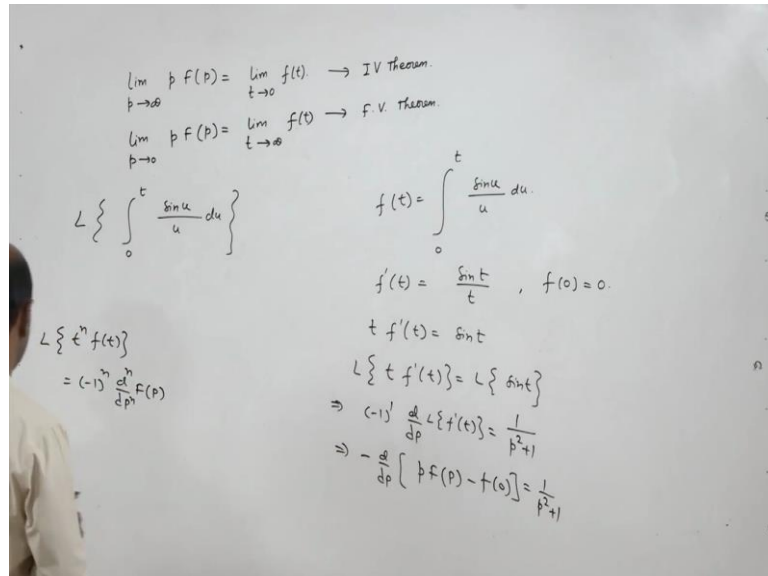 lim p F(p) = lim f(t). → IV Theorem.
p→∞ t→0
lim p F(p) = lim f(t) → F.V. Theorem.
p→0 t→∞
L{ ∫₀ᵗ sinu/u du }
L{tⁿ f(t)}
= (-1)ⁿ dⁿ/dpⁿ F(p)
f(t) = ∫₀ᵗ sinu/u du.
f'(t) = sint/t , f(0) = 0.
t f'(t) = sint
L{t f'(t)} = L{sint}
⇒ (-1)' d/dp L{f'(t)} = 1/p²+1
⇒ - d/dp [p F(p) - f(0)] = 1/p²+1